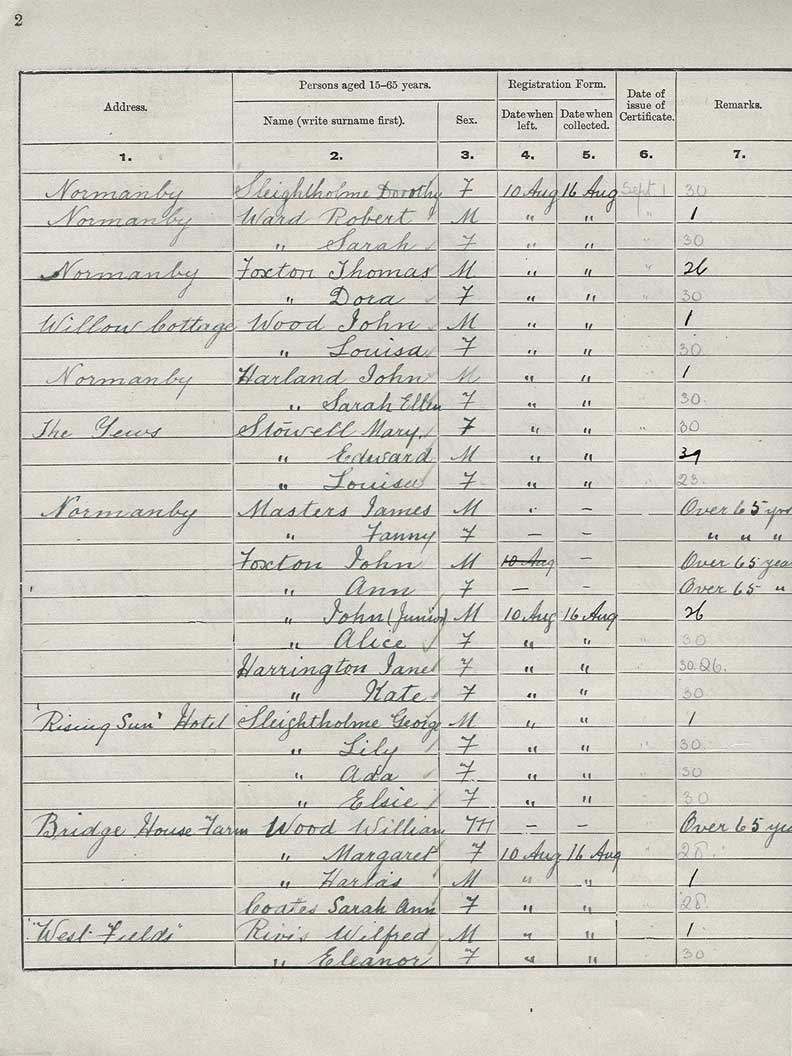 2
Address. Persons aged 15–65 years. Registration Form. Date of issue of Certificate. Remarks.
Name (write surname first). Sex. Date when left. Date when collected.
1. 2. 3. 4. 5. 6. 7.
Normanby Sleightholme Dorothy F 10 Aug 16 Aug Sept. 1 30
Normanby Ward Robert M " " " 1
" Sarah F " " " 30
Normanby Foxton Thomas M " " " 26
" Dora F " " " 30
Willow Cottage Wood John M " " " 1
" Louisa F " " " 30
Normanby Harland John M " " " 1
" Sarah Ellen F " " " 30
The Yews Stowell Mary. F " " " 30
" Edward M " "
" Louisa F " " 23
Normanby Masters James M – Over 65 yrs
" Fanny F – – " " "
Foxton John M 10 Aug – Over 65 yea
" Ann F – – Over 65 "
" John (Junior) M 10 Aug 16 Aug 26
" Alice F " " 30
Harrington Jane F " " 30. 26.
" Kate F " " 30
"Rising Sun" Hotel Sleightholme George M " " 1
" Lily F " " " 30
" Ada F " " " 30
" Elsie F " " " 30
Bridge House Farm Wood William M – – " Over 65 yea
" Margaret F 10 Aug 16 Aug " 28
" Harlas M " " " 1
Coates Sarah Ann F " " " 28
"West Fields" Rivis Wilfred M " " " 1
" Eleanor F " " " 30